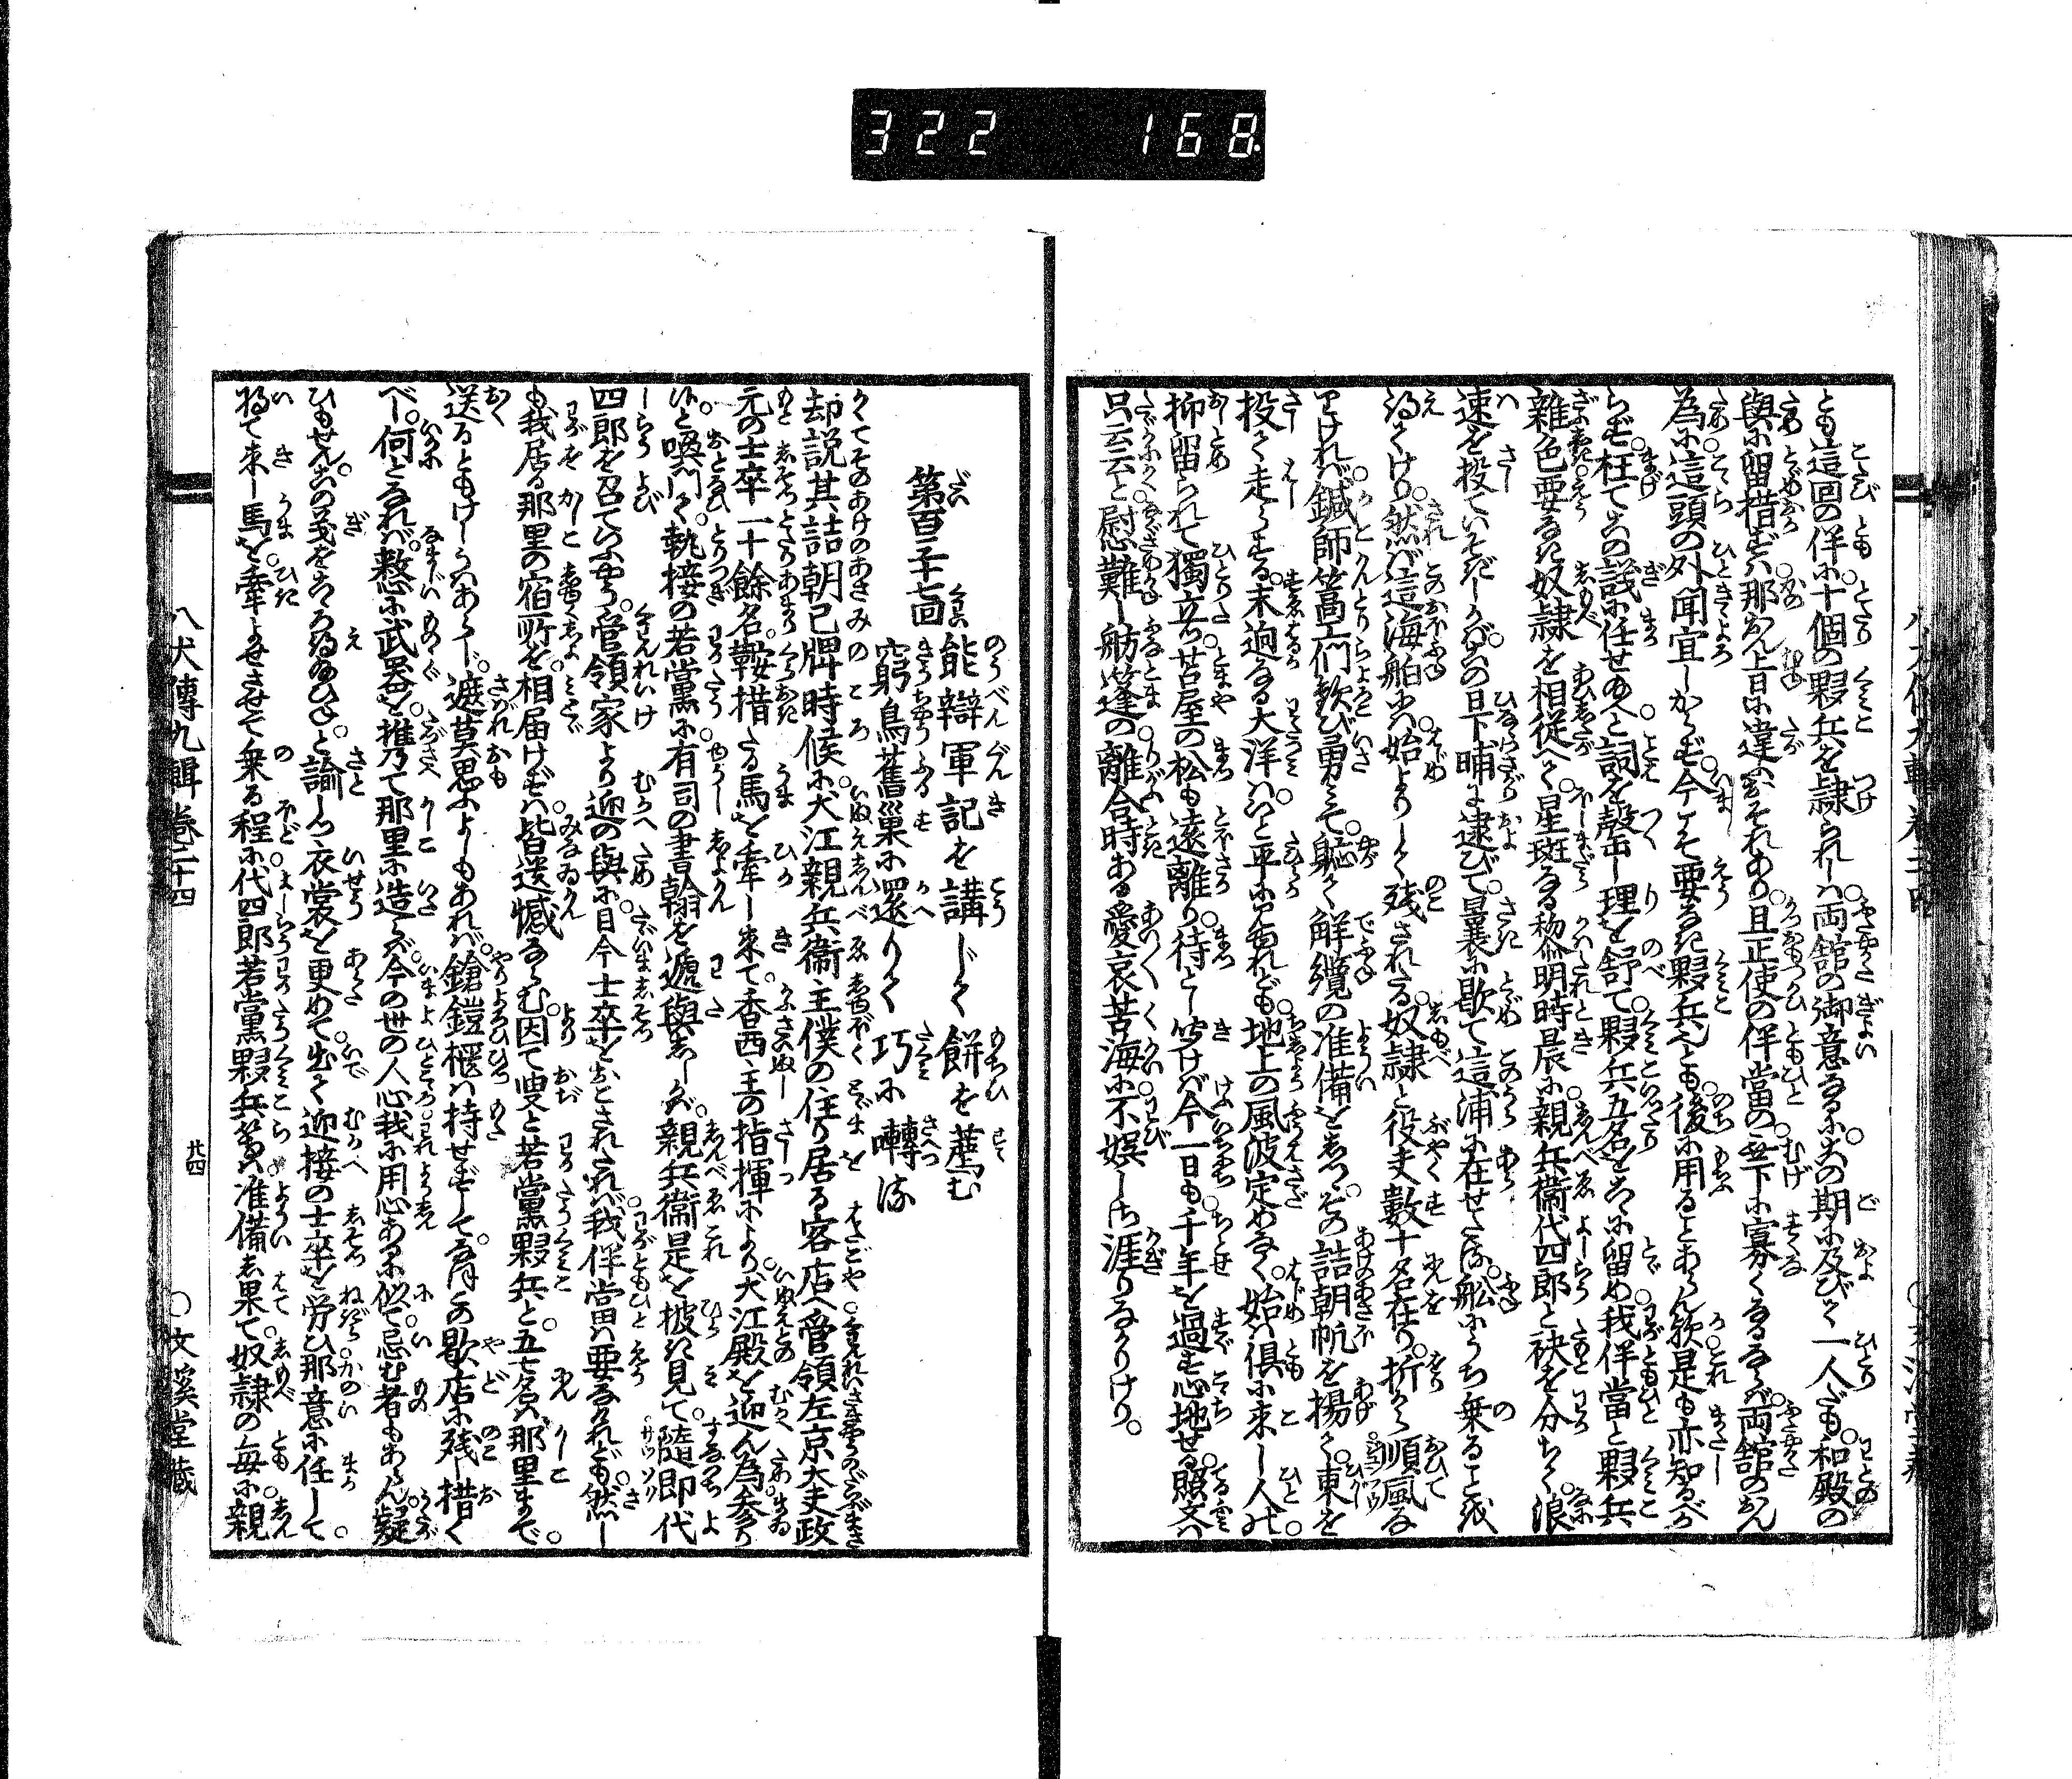 322 168
とも這回の伴に十個の夥兵を隷られしは両舘の御意なるにこの期に及びて一人だも和殿の
與に留措ずは那おん上日に違ふおそれあり且正使の伴當の無下に寡くなるならば両舘のおん
為に這頭の外聞宜しからず今こそ要なき夥兵也とも後に用ることあらん歟是も亦知るべか
らず枉てこの議に任せ給へと詞を盡し理を舒て夥兵五名をここに留め我伴當と夥兵
雜色要なき奴隷を相従へて星斑なる明時辰に親兵衛代四郎と袂を分ちて浪
速を投ていそぎしかばこの日下晡に逮びて曩裏に歇て這浦に在せたる舩にうち乗ることを
得てけり然ば這海舶には始よりして残されたる奴隷と役夫數十名在り折から順風な
りければ鍼師篙工們歓び勇みて解纜の准備をしつその詰朝帆を揚て東を
投て走らする末迥なる大洋はいと平にあれども地上の風波定めなく始は倶に来し人の
抑留られて獨立つ苫屋の松も遠離り待としけば今一日も千年を過す心地せる照文は
只云云と慰難し舫篷の離合時ある愛哀苦海に不娯しさ涯りなかりけり
第百三十七回 能辯軍記を講じて餅を薦む
窮鳥舊巣に還りて巧に囀る
却説其詰朝巳牌時候に犬江親兵衞主僕の住り居る客店へ管領左京大夫政
元の士卒一十餘名鞍措たる馬を牽し来て香西主の指揮により犬江殿を迎ん為参り
ぬと喚門て執接の若黨に有司の書翰を逓與ししかば親兵衞是を披き見て隨即代
四郎を召ていふやう管領家より迎の與に目今士卒をおこされたれば我伴當は要なけれども然し
も我居る那里の宿所を相届けずは皆遺憾ならむ因て叟と若黨夥兵と五七名は那里まで
送るともけしうはあらじ遮莫思ふよしもあれば鎗鎧櫃は持せずして這歇店に残し措く
べし何となれば憖に武器を推乃て那里に造らば今の世の人心我に用心あるに似て忌む者もあらん疑
ひもせんこの義をこころ得給ひねと諭しつ衣裳を更めて出て迎接の士卒を労ひ那意に任して
将て来し馬を牽よせさせて乗る程に代四郎若黨夥兵等は准備し果て奴隷の毎に親
八犬傳九輯巻二十四 廿四 ○文溪堂藏